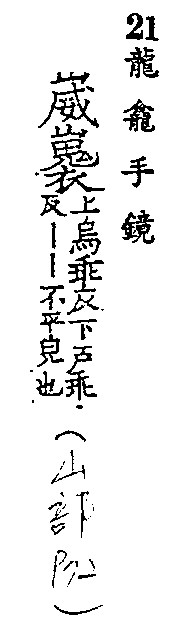 21龍龕手鏡
崴㠢上烏乖反下戸乖
反——不平皃也
(山部)